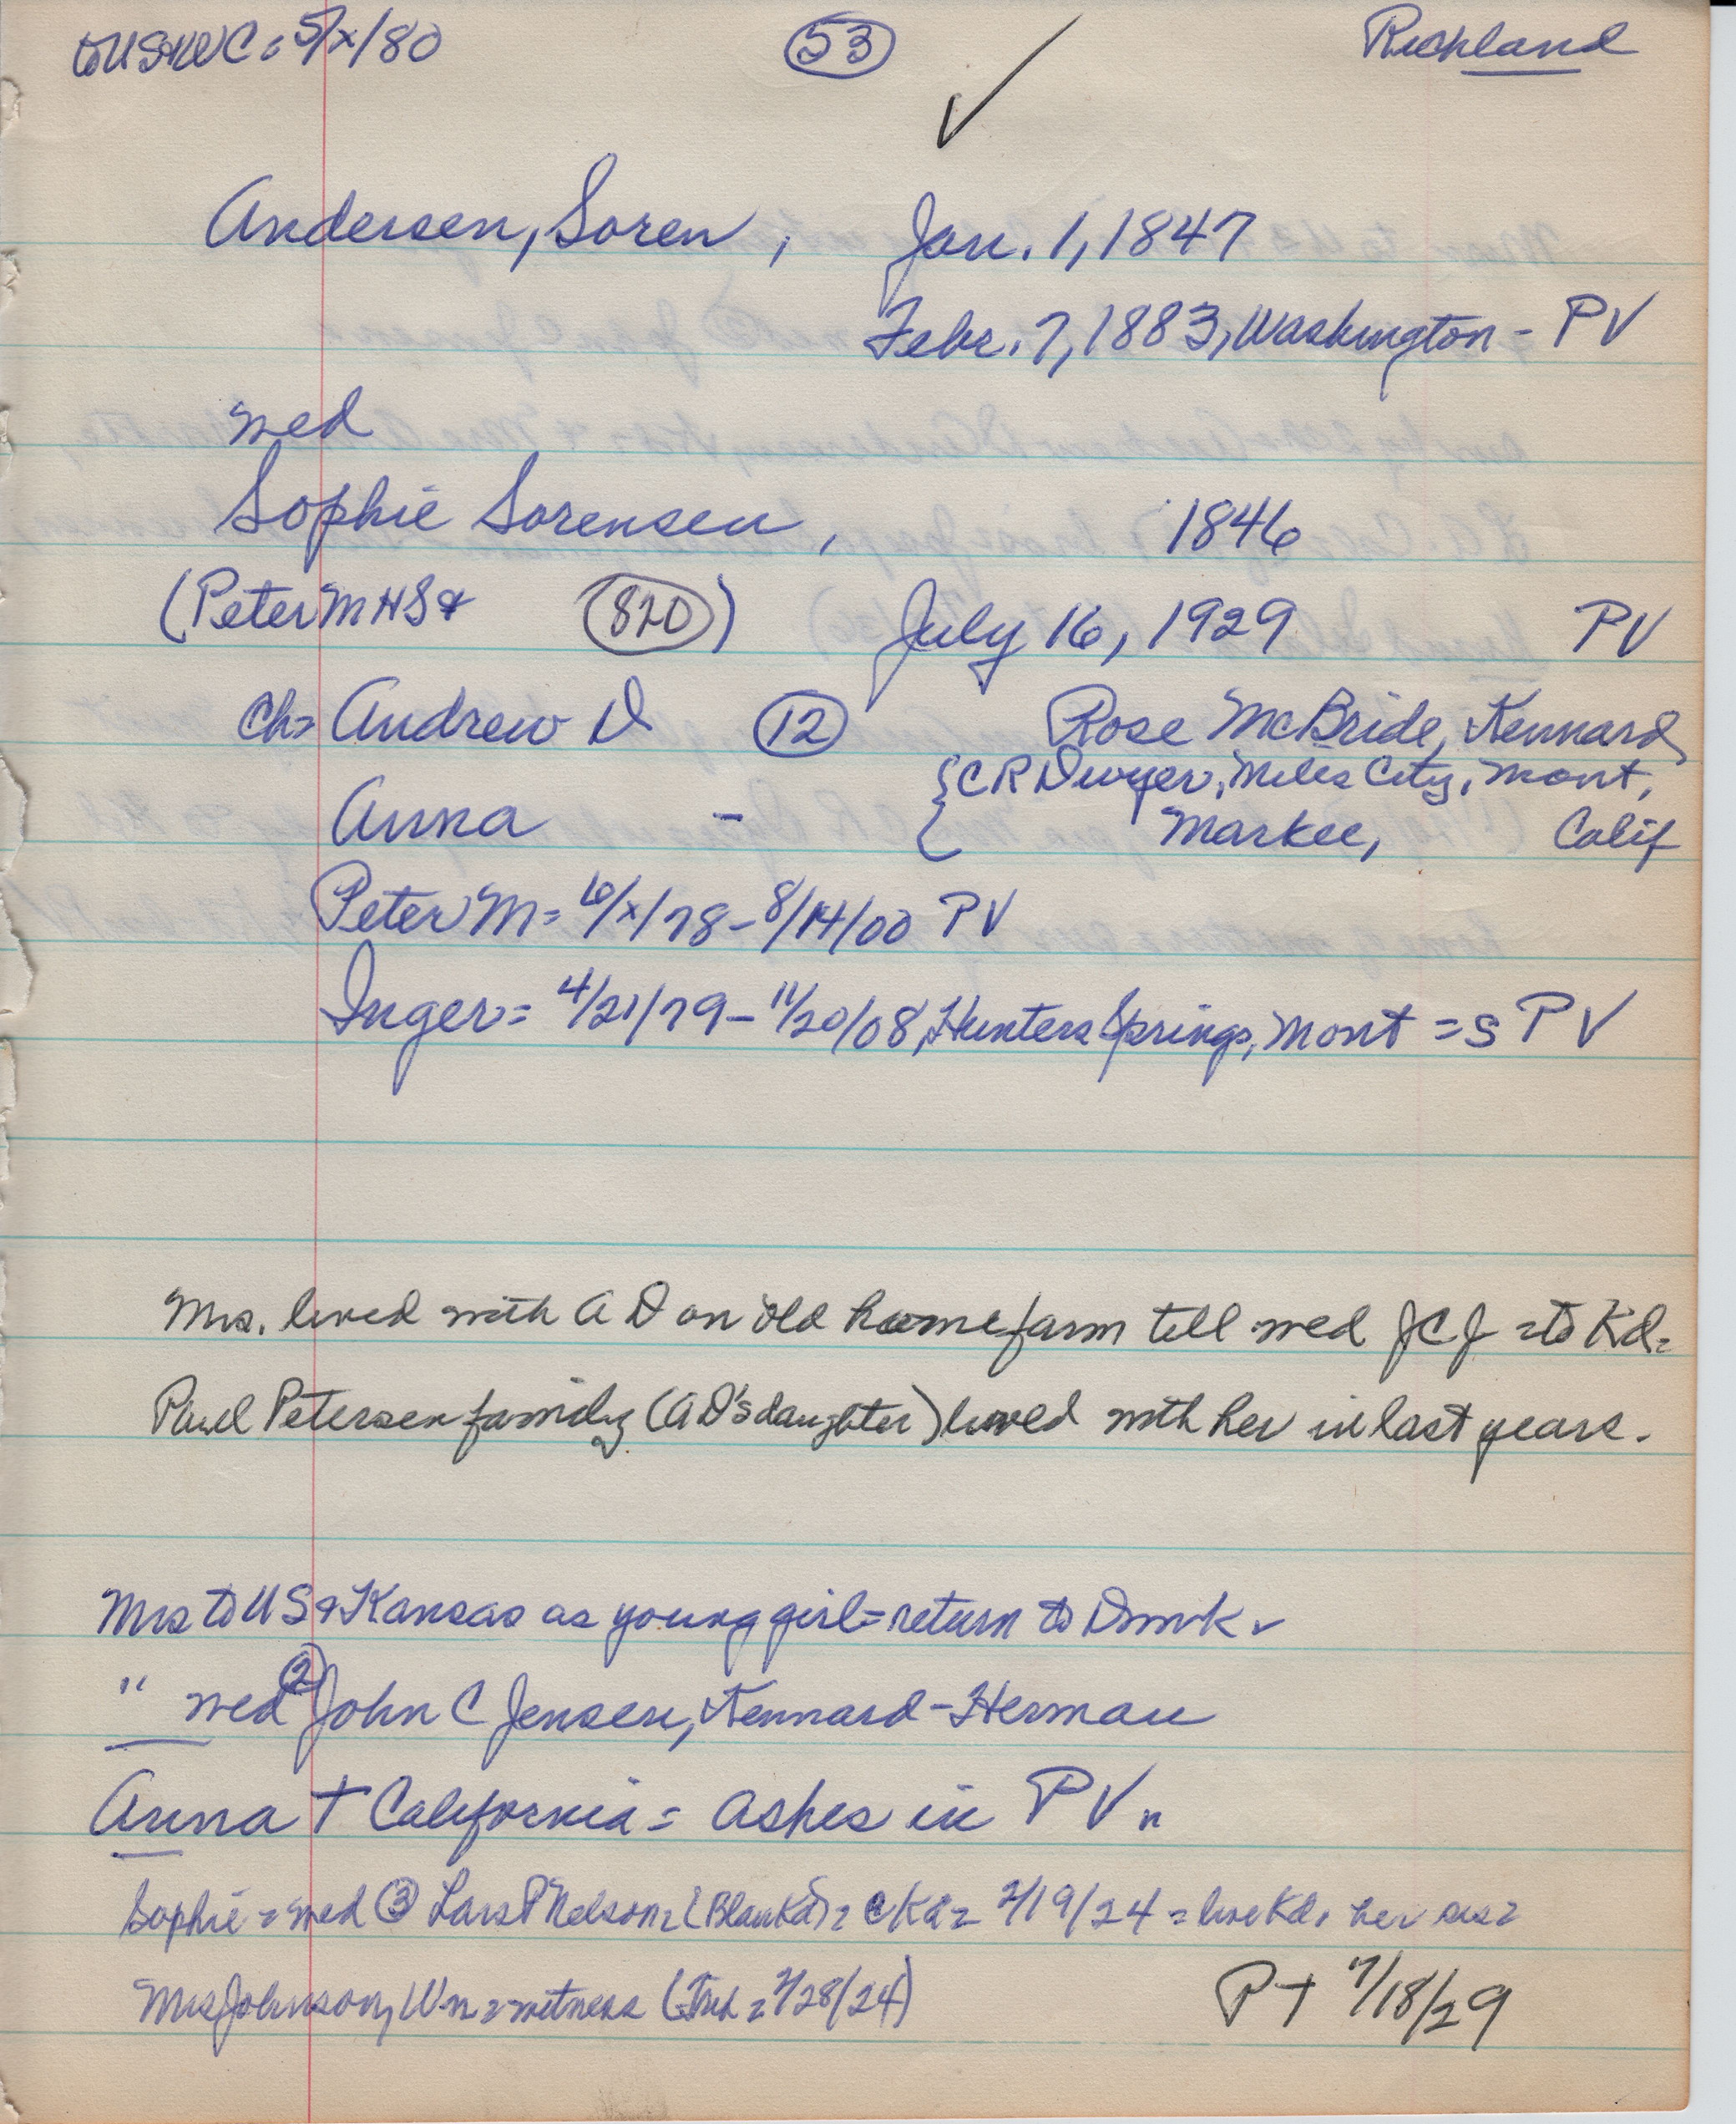 to US & WC = 5/x/80 (53) Richland
✓
Andersen, Soren, Jan. 1, 1847
Febr. 7, 1883, Washington - PV
wed
Sophie Sorensen, 1846
(Peter M HS & (820)) July 16, 1929 PV
ch= Andrew D (12) Rose McBride, Kennard
{CR Dwyer, Miles City, Mont,
Anna - { Markee, Calif
Peter M = 6/x/78 - 8/14/00 PV
Inger = 4/21/79 - 11/20/08, Hunters Springs, Mont = S PV
Mrs. lived with A D on old home farm till wed JCJ = to Kd =
Paul Petersen family (AD's daughter) lived with her in last years.
Mrs to US & Kansas as young girl = return to Dmrk.
" wed (2) John C Jensen, Kennard - Herman
Anna + California = ashes in PV
Sophie = wed (3) Lars P Nelson = (Blau Kd) = c Kd = 2/19/24 = live Kd, her sis =
Mrs Johnson, Wn = witness ( = 2/28/24) P + 7/18/29